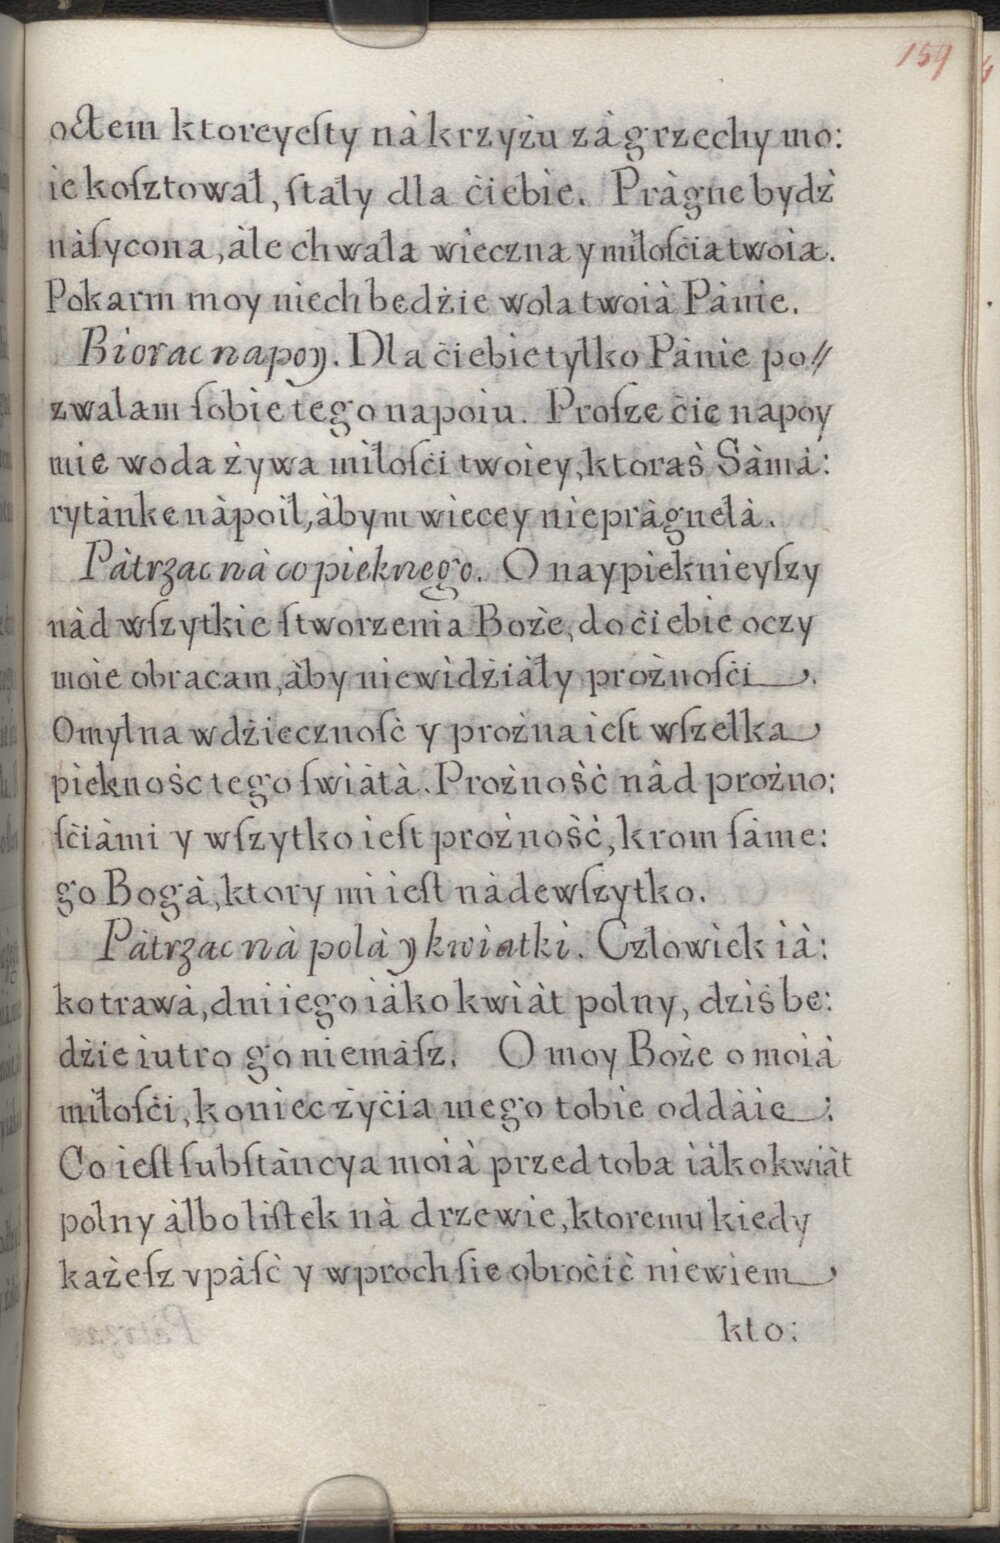 159
octem ktoreyeſty nà krzyżu zà grzechy mo:
ie koſztował, ſtały dla ćiebie. Pràgne bydź
nàſycona, àle chwała wieczna y miłoſcia twoia.
Pokarm moy niech bedźie wola twoià Pànie.
Biorac napoy. Dla ćiebie tylko Pànie po//
zwalam ſobie tego napoiu. Proſze ćie napoy
mie woda żywa miłoſći twoiey, ktoraś Sàmà:
rytànke nàpoił, àbym wiecey nie pràgnełà.
Pàtrzac nà co pieknego. O naypieknieyſzy
nàd wſzytkie ſtworzenia Boże, do ćiebie oczy
moie obracam, àby niewidźiàły prożnoſći.
Omylna wdźiecznoſć y prożna ieſt wſzelka
pieknośc tego ſwiàtà. Prożność nàd prożno:
ſćiàmi y wſzytko ieſt prożność, krom ſàme:
go Bogà, ktory mi ieſt nàdewſzytko.
Pàtrzac nà polà y kwiatki. Człowiek ià:
ko trawà, dni iego iàko kwiàt polny, dziś be:
dźie iutro go niemàſz. O moy Boże o moià
miłoſći, koniec żyćia mego tobie oddàie:
Co ieſt ſubſtàncya moià przed toba iàko kwiàt
polny àlbo liſtek nà drzewie, ktoremu kiedy
każeſz vpàſć y wproch ſie obroćić niewiem
kto: